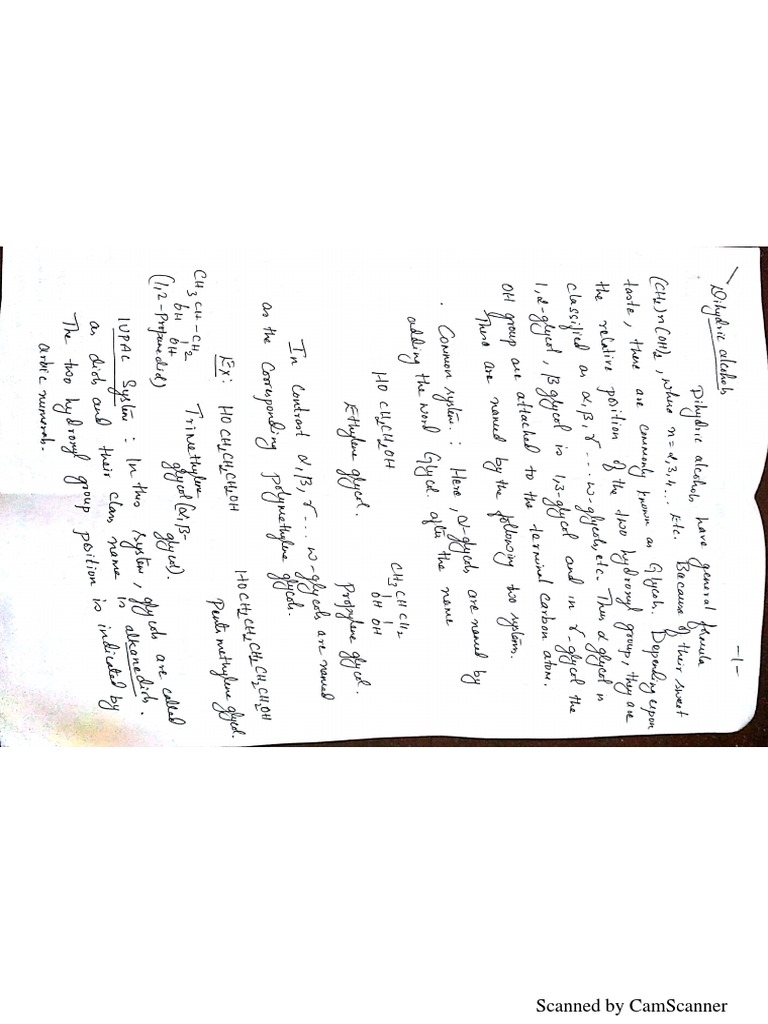 -1-
Dihydric alcohols
Dihydric alcohols have general formula
(CH2)n(OH)2, where n=2,3,4... etc. Bacause of their sweet
taste, these are commonly known as Glycols. Depending upon
the relative position of the two hydroxyl group, they are
classified as α,β,γ... w-glycols, etc. Thus α glycol is
1,2-glycol, β glycol is 1,3-glycol and in γ-glycol the
OH group are attached to the terminal carbon atom.
These are named by the following two system.
. Common system : Here, α-glycols are named by
adding the word Glycol after the name
HO CH2CH2OH
CH3 CH CH2
OH OH
Ethylene glycol.
Propylene glycol.
In contrast α,β,γ... w-glycols are named
as the corresponding polymethylene glycols.
Ex: HOCH2CH2CH2OH
HOCH2CH2CH2CH2CH2OH
CH3 CH-CH2
OH OH
(1,2-Propanediol)
Trimethylene
glycol(α,β-
glycol).
Pentamethylene glycol.
IUPAC System : In this system, glycols are called
as diols and their class name is alkanediols.
The two hydroxyl group position is indicated by
arbic numerals.
Scanned by CamScanner